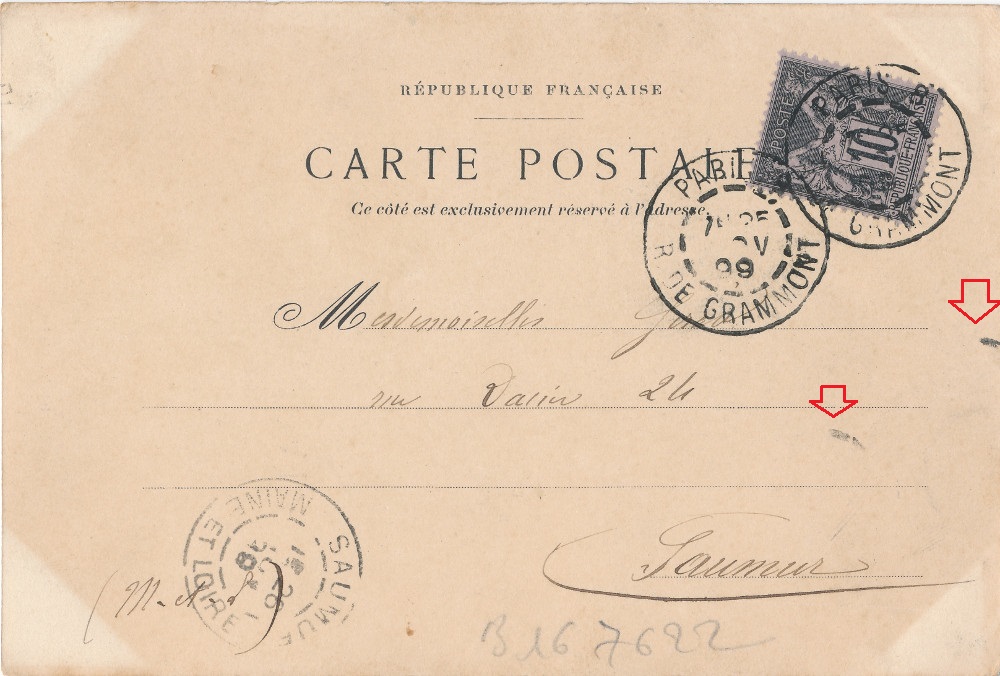 RÉPUBLIQUE FRANÇAISE
CARTE POSTALE
Ce côté est exclusivement réservé à l'adresse.
POSTES 10 RÉPUBLIQUE FRANÇAISE
PARIS R. DE GRAMMONT
PARIS 25 99 R. DE GRAMMONT
Mesdemoiselles
rue Dacier 24
Saumur
(M-et-L)
SAUMUR 26 MAINE ET LOIRE
B 16 7622